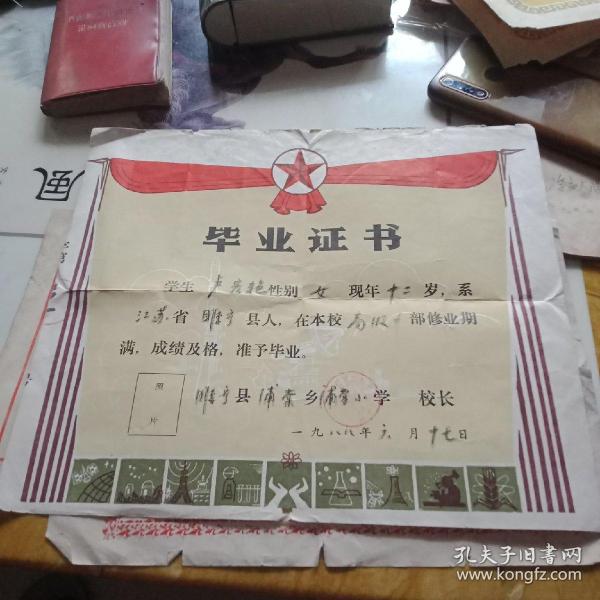 毕业证书
学生 卢 艳性别 女 现年十二岁，系
江苏省睢宁县人，在本校高级 部修业期
满，成绩及格，准予毕业。
照
片
睢宁县浦棠乡浦棠小学 校长
一九八八年六月十七日
風
孔夫子旧书网
www.kongfz.com